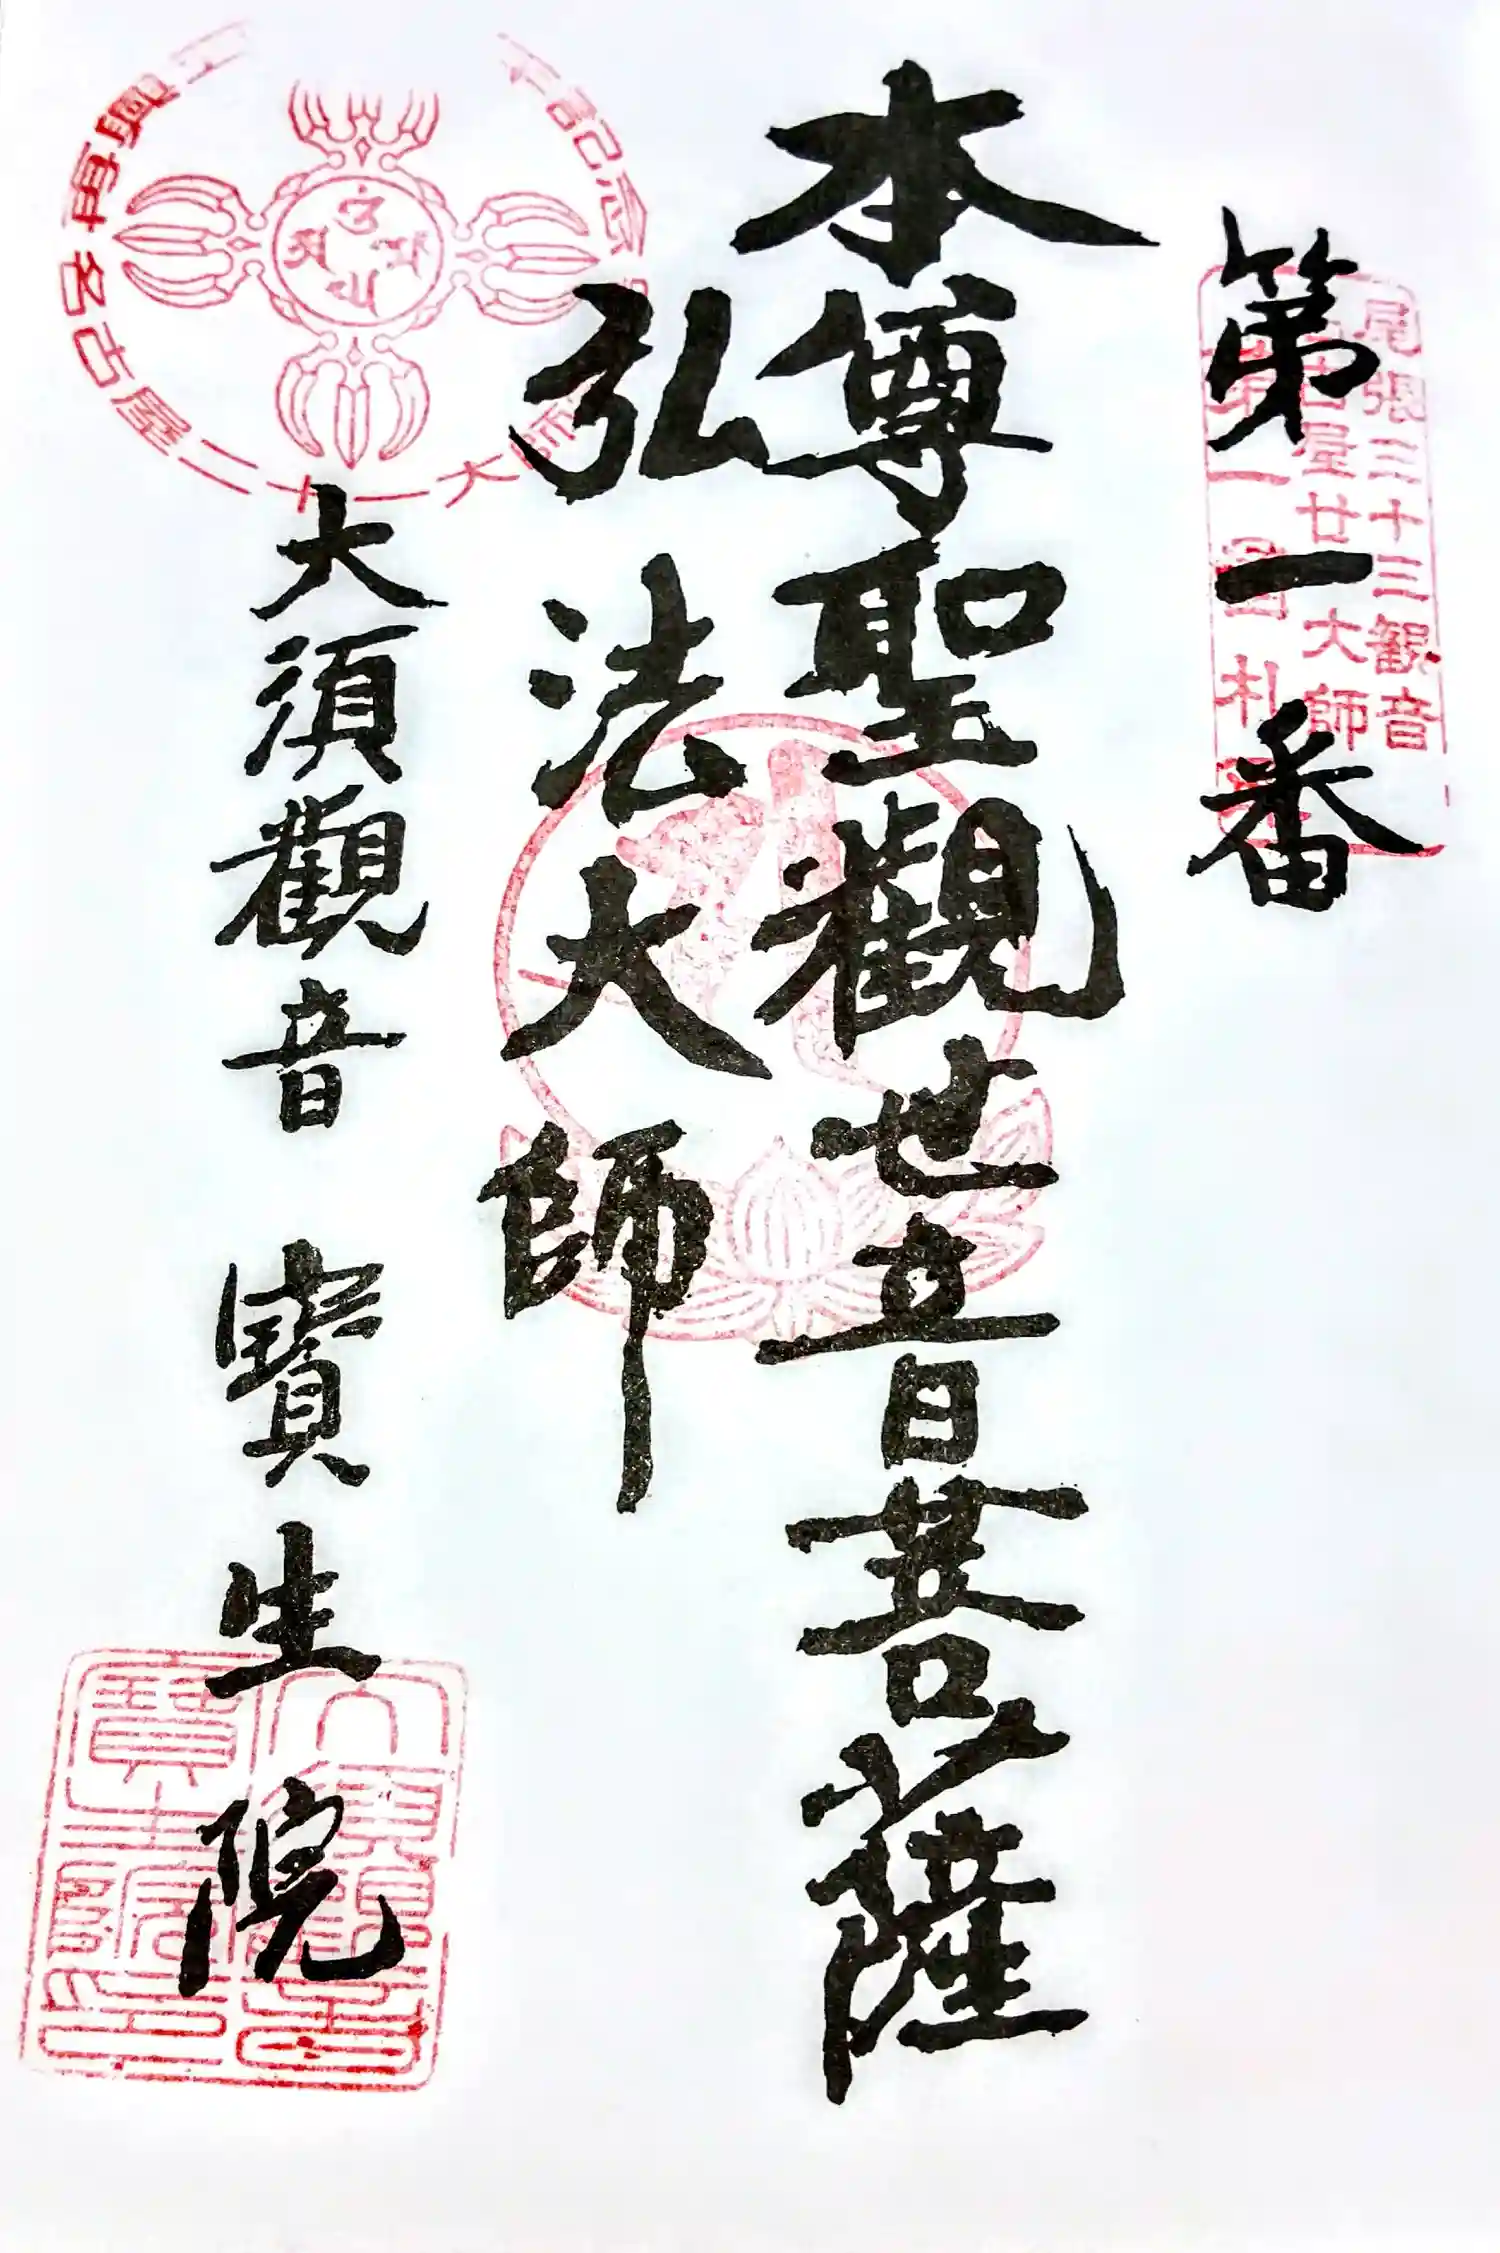 第一番
尾張三十三観音
名古屋廿一大師
第一番札所
本尊聖觀世音菩薩
弘法大師
大須觀音 寶生院
記念
名古屋二十一大師
大須觀音
寶生院印